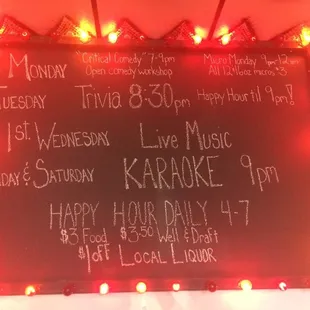 "Critical Comedy" 7-9pm
Micro Monday 9pm-12am
MONDAY
Open comedy workshop
All 12+16oz micros $3
TUESDAY Trivia 8-30pm Happy Hour til 9pm!
1st WEDNESDAY Live Music
& SATURDAY KARAOKE 9pm
HAPPY HOUR DAILY 4-7
$3 Food $3.50 Well & Draft
$1 off LOCAL LIQUOR